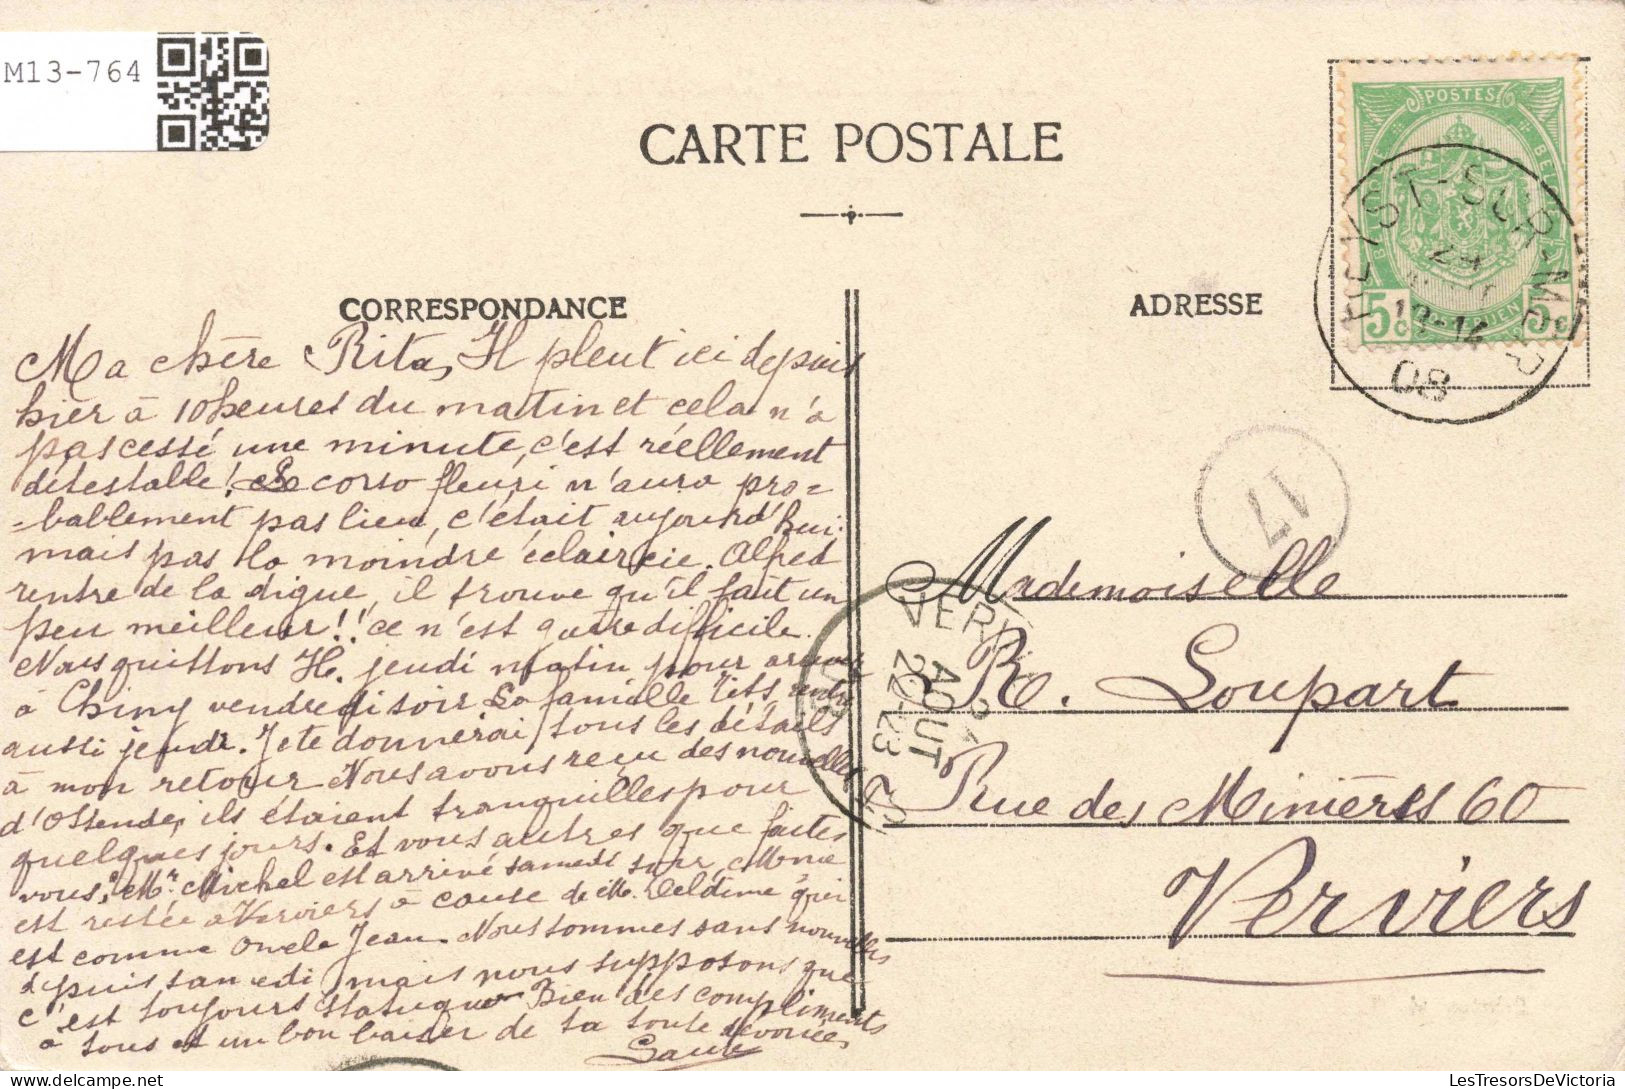 M13-764
CARTE POSTALE
POSTES
BELGIQUE
5c 5c
HEYST-SUR-MER
24
12-14
08
CORRESPONDANCE
ADRESSE
17
Ma chère Rita, Il pleut ici depuis
hier à 10 heures du matin et cela n'a
pas cessé une minute, c'est réellement
détestable! Le corso fleuri n'aura pro=
=bablement pas lieu, c'était aujourd'hui
mais pas la moindre éclaircie. Alfred
rentre de la digue, il trouve qu'il fait un
peu meilleur!! ce n'est guère difficile.
Nous quittons H. jeudi matin pour arriver
à Chiny vendredi soir La famille rentre
aussi jeudi. Je te donnerai tous les détails
à mon retour Nous avons reçu des nouvelles
d'Ostende, ils étaient tranquilles pour
quelques jours. Et vous autres que faites
vous? Mr. Michel est arrivé samedi soir, Mme
est restée à Verviers à cause de M. Deldime qui
est comme Oncle Jean. Nous sommes sans nouvelles
depuis samedi mais nous supposons que
c'est toujours statuquo Bien des compliments
à tous et un bon baiser de ta toute dévouée,
VERVIERS
24
AOUT
22-23
08
Mademoiselle
R. Loupart
Rue des Minières 60
Verviers
LesTresorsDeVictoria | LesTresorsDeVictoria